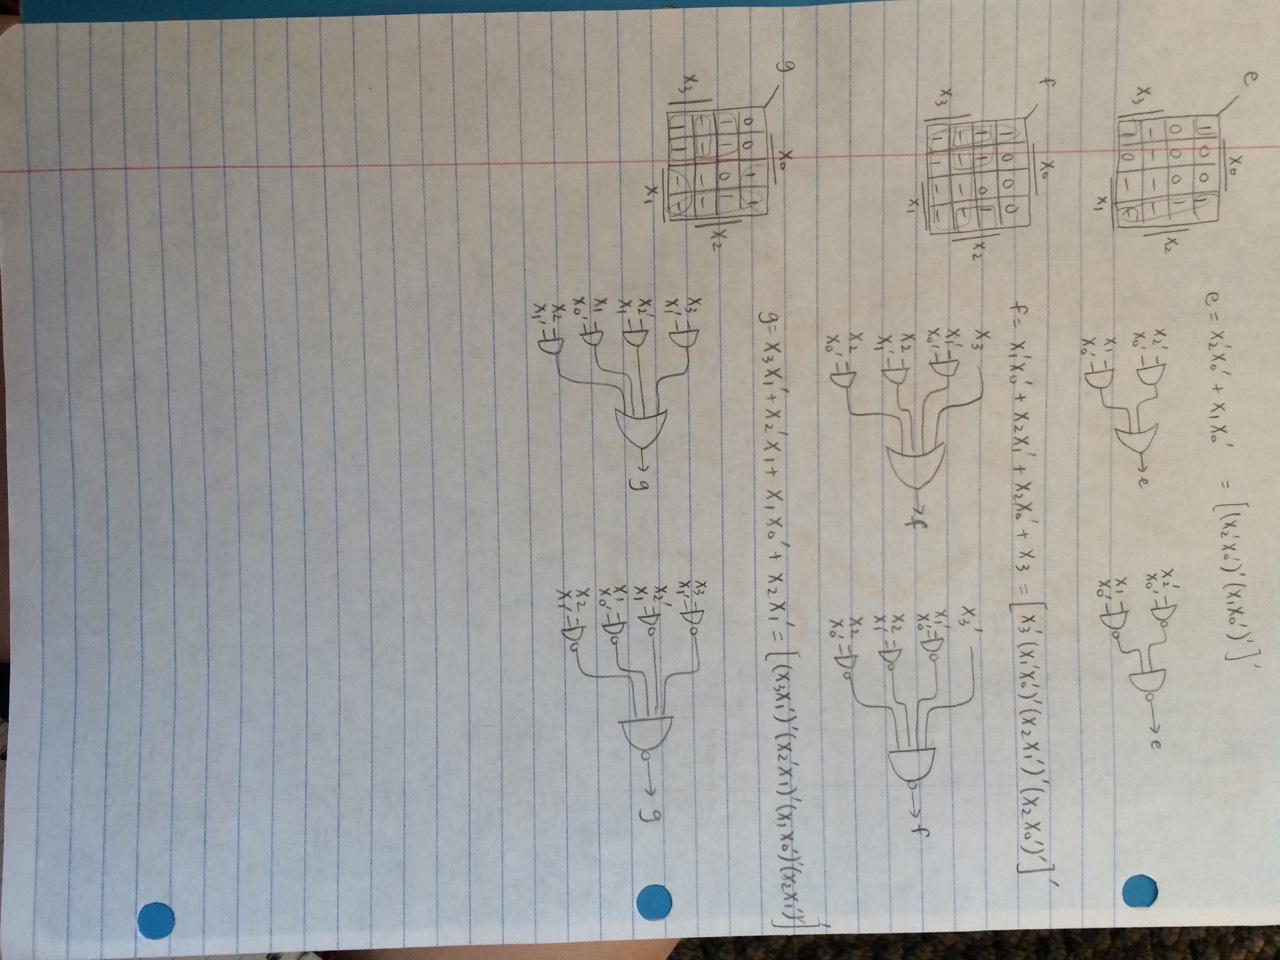 e
X0
1 0 0 1
0 0 0 1
- - - -
1 0 - -
X3
X2
X1
e = x2'x0' + x1x0' = [(x2'x0')'(x1x0')']'
x2'
x0'
x1
x0'
e
x2'
x0'
x1
x0'
e
f
X0
1 0 0 0
1 1 0 1
- - - -
1 1 - -
X3
X2
X1
f = x1'x0' + x2x1' + x2x0' + x3 = [x3'(x1'x0')'(x2x1')'(x2x0')']'
x3
x1'
x0'
x2
x1'
x2
x0'
f
x3'
x1'
x0'
x2
x1'
x2
x0'
f
g
X0
0 0 1 1
1 1 0 1
- - - -
1 1 - -
X3
X2
X1
g = x3x1' + x2'x1 + x1x0' + x2x1' = [(x3x1')'(x2'x1)'(x1x0')'(x2x1')']'
x3
x1'
x2'
x1
x1
x0'
x2
x1'
g
x3
x1'
x2'
x1
x1
x0'
x2
x1'
g